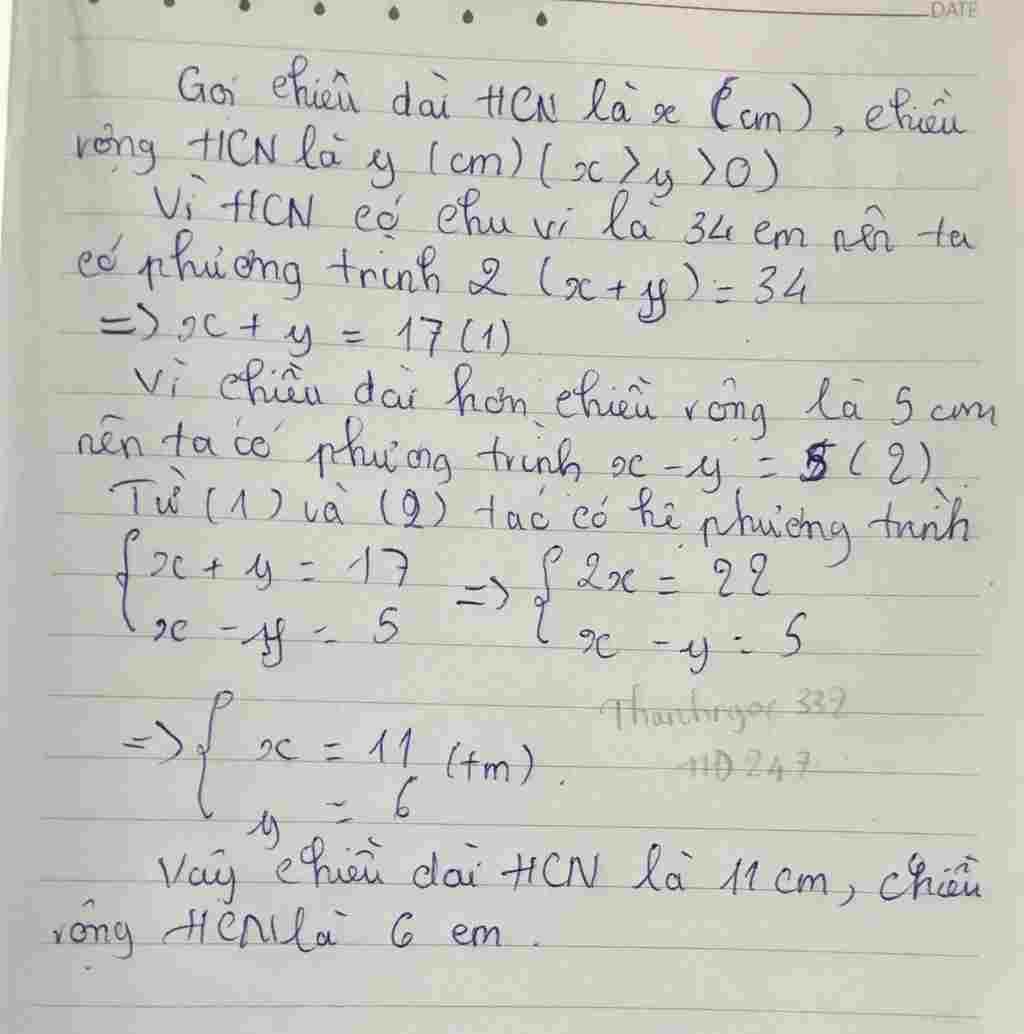 DATE
Gọi chiều dài HCN là x (cm), chiều
rộng HCN là y (cm) (x > y > 0)
Vì HCN có chu vi là 34 cm nên ta
có phương trình 2 (x + y) = 34
=> x + y = 17 (1)
Vì chiều dài hơn chiều rộng là 5 cm
nên ta có phương trình x - y = 5 (2)
Từ (1) và (2) tac có hệ phương trình
{ x + y = 17 => { 2x = 22
x - y = 5 x - y = 5
Thanhngoc 339
=> { x = 11 (tm).
HD 247
y = 6
Vậy chiều dài HCN là 11 cm, chiều
rộng HCN là 6 cm.